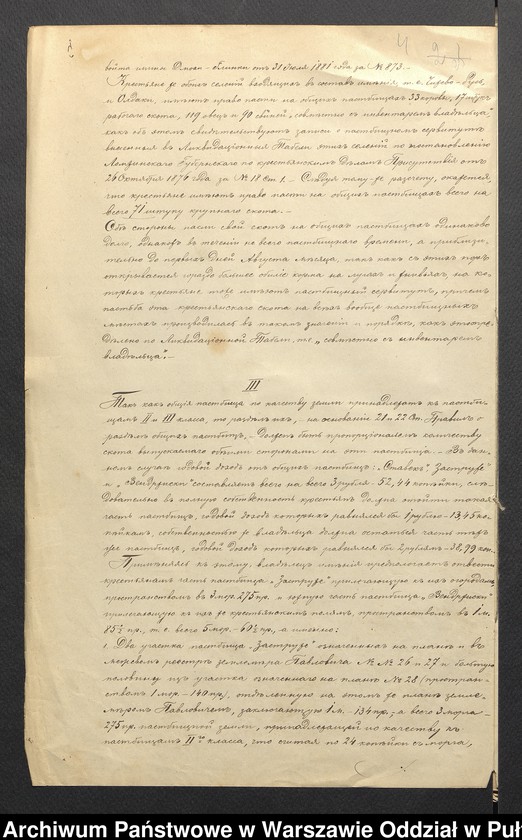 войта гмины Откан-Глинки отъ 31 Июля 1881 года за № 873.-
Крестьяне изъ обоихъ селеній входящихъ въ составъ имѣнія, т. е.
и имѣютъ право пасти на общихъ пастбищахъ 33 коровы, 17 штукъ
рабочаго скота, 119 овецъ и 90 свиней „совмѣстно съ инвентаремъ владѣльца“,
какъ объ этомъ свидѣтельствуютъ записи о пастбищномъ сервитутѣ
внесенныя въ Ликвидаціонныя Табели этихъ селеній по постановленію
Ломжинскаго Губернскаго по крестьянскимъ Дѣламъ Присутствія отъ
26 Октября 1876 года за № 18 ст. 1.- Слѣдуя тому-же разсчету, окажется,
что крестьяне имѣютъ право пасти на общихъ пастбищахъ всего на
всего 71 штуку крупнаго скота.-
Обѣ стороны пасутъ свой скотъ на общихъ пастбищахъ одинаково
долго, однакожъ въ теченіи не всего пастбищнаго времени, а приблизи-
тельно до первыхъ дней Августа мѣсяца, такъ какъ съ этихъ поръ
открывается гораздо болѣе обиліе корма на лугахъ и на ко-
торыхъ крестьяне тоже имѣютъ пастбищный сервитутъ, причемъ
пастьба ота крестьянскаго скота на всѣхъ вообще пастбищныхъ
мѣстахъ производилась въ такомъ значеніи и порядкѣ, какъ опре-
дѣлено по Ликвидаціонной Табели, т. е. „совмѣстно съ инвентаремъ
владѣльца“.-
III
Такъ какъ общія пастбища по качеству земли принадлежатъ къ пастби-
щамъ II и III класса, то раздѣлъ ихъ, - на основаніи 21 и 22 Ст. Правилъ о
раздѣлѣ общихъ пастбищъ, - долженъ быть пропорціоналенъ количеству
скота выпускаемаго обѣими сторонами на эти пастбища.- Въ дан-
номъ случаѣ годовой доходъ отъ общихъ пастбищъ: „Ставекъ“, „Заструже“
и составляетъ всего на всего 3 рубля - 52,44 копѣйки, слѣ-
довательно въ полную собственность крестьянъ должна отойти такая
часть пастбищъ, годовой доходъ которыхъ равнялся бы 1 рублю - 13,45 ко-
пѣйкамъ, собственностью же владѣльца должна остаться часть тѣхъ
же пастбищъ, годовой доходъ которыхъ равнялся бы 2 рублямъ - 38,99 коп.
Примѣняясь къ этому, владѣлецъ имѣнія предполагаетъ отвести
крестьянамъ часть пастбища „Заструже“ прилегающую къ ихъ огородамъ
пространствомъ въ 3 мор. 275 пр. и такую часть пастбища
прилегающую къ ихъ же крестьянскимъ полямъ, пространствомъ въ 1 м.
85½ пр., т. е. всего 5 мор. - 60½ пр., а именно:
1. Два участка пастбища „Заструже“ означенные на планѣ и въ
межевомъ реестрѣ землемѣра Павловича №№ 26 и 27 и большую
половину изъ участка означеннаго на планѣ № 28 (простран-
ствомъ 1 мор - 140 пр.), отдѣленную на этомъ же планѣ земле-
мѣромъ Павловичемъ, заключающую 1 м. - 134 пр.; а всего 3 морга -
275 пр. пастбищной земли, принадлежащей по качеству къ
пастбищамъ II го класса, что считая по 24 копѣйки съ морга,
Archiwum Państwowe w Warszawie Oddział w Puł